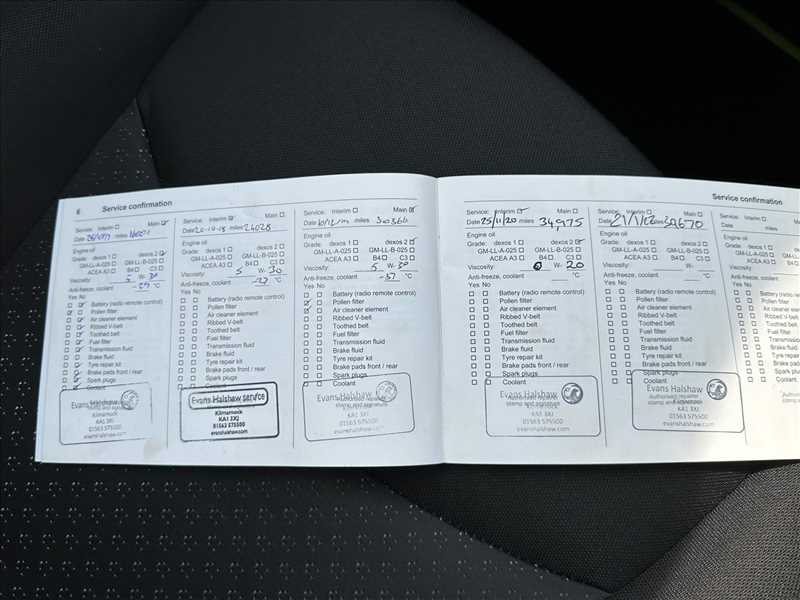 6 Service confirmation
Service: Interim Main
Date miles
Engine oil
Grade: dexos 1 dexos 2
GM-LL-A-025 GM-LL-B-025
ACEA A3 B4 C3
Viscosity: 5 W- 30
Anti-freeze, coolant °C
Yes No
Battery (radio remote control)
Pollen filter
Air cleaner element
Ribbed V-belt
Toothed belt
Fuel filter
Transmission fluid
Brake fluid
Tyre repair kit
Brake pads front / rear
Spark plugs
Coolant
Evans Halshaw
Kilmarnock
KA1 3XJ
01563 575500
evanshalshaw.com
Service: Interim Main
Date 20-10-18 miles 24028
Engine oil
Grade: dexos 1 dexos 2
GM-LL-A-025 GM-LL-B-025
ACEA A3 B4 C3
Viscosity: 5 W- 30
Anti-freeze, coolant -37 °C
Yes No
Battery (radio remote control)
Pollen filter
Air cleaner element
Ribbed V-belt
Toothed belt
Fuel filter
Transmission fluid
Brake fluid
Tyre repair kit
Brake pads front / rear
Spark plugs
Coolant
Evans Halshaw service
Kilmarnock
KA1 3XJ
01563 575500
evanshalshaw.com
Service: Interim Main
Date miles 30366
Engine oil
Grade: dexos 1 dexos 2
GM-LL-A-025 GM-LL-B-025
ACEA A3 B4 C3
Viscosity: 5 W- 30
Anti-freeze, coolant -37 °C
Yes No
Battery (radio remote control)
Pollen filter
Air cleaner element
Ribbed V-belt
Toothed belt
Fuel filter
Transmission fluid
Brake fluid
Tyre repair kit
Brake pads front / rear
Spark plugs
Coolant
Evans Halshaw
Authorised repairer
stamp and signature
KA1 3XJ
01563 575500
evanshalshaw.com
Service confirmation
Service: Interim Main
Date 25/11/20 miles 34,975
Engine oil
Grade: dexos 1 dexos 2
GM-LL-A-025 GM-LL-B-025
ACEA A3 B4 C3
Viscosity: 0 W- 20
Anti-freeze, coolant °C
Yes No
Battery (radio remote control)
Pollen filter
Air cleaner element
Ribbed V-belt
Toothed belt
Fuel filter
Transmission fluid
Brake fluid
Tyre repair kit
Brake pads front / rear
Spark plugs
Coolant
Evans Halshaw
Authorised repairer
stamp and signature
Kilmarnock
KA1 3XJ
01563 575500
evanshalshaw.com
Service: Interim Main
Date miles 39670
Engine oil
Grade: dexos 1 dexos 2
GM-LL-A-025 GM-LL-B-025
ACEA A3 B4 C3
Viscosity: W-
Anti-freeze, coolant °C
Yes No
Battery (radio remote control)
Pollen filter
Air cleaner element
Ribbed V-belt
Toothed belt
Fuel filter
Transmission fluid
Brake fluid
Tyre repair kit
Brake pads front / rear
Spark plugs
Coolant
Evans Halshaw
Authorised repairer
stamp and
Kilmarnock
KA1 3XJ
01563 575500
evanshalshaw.com
Service: Interim
Date miles
Engine oil
Grade: dexos 1
GM-LL-A-025
ACEA A3
Viscosity:
Anti-freeze, coolant
Yes No
Battery (radio
Pollen filter
Air cleaner
Ribbed V-belt
Toothed belt
Fuel filter
Transmission
Brake fluid
Tyre repair
Brake pads
Spark plugs
Coolant